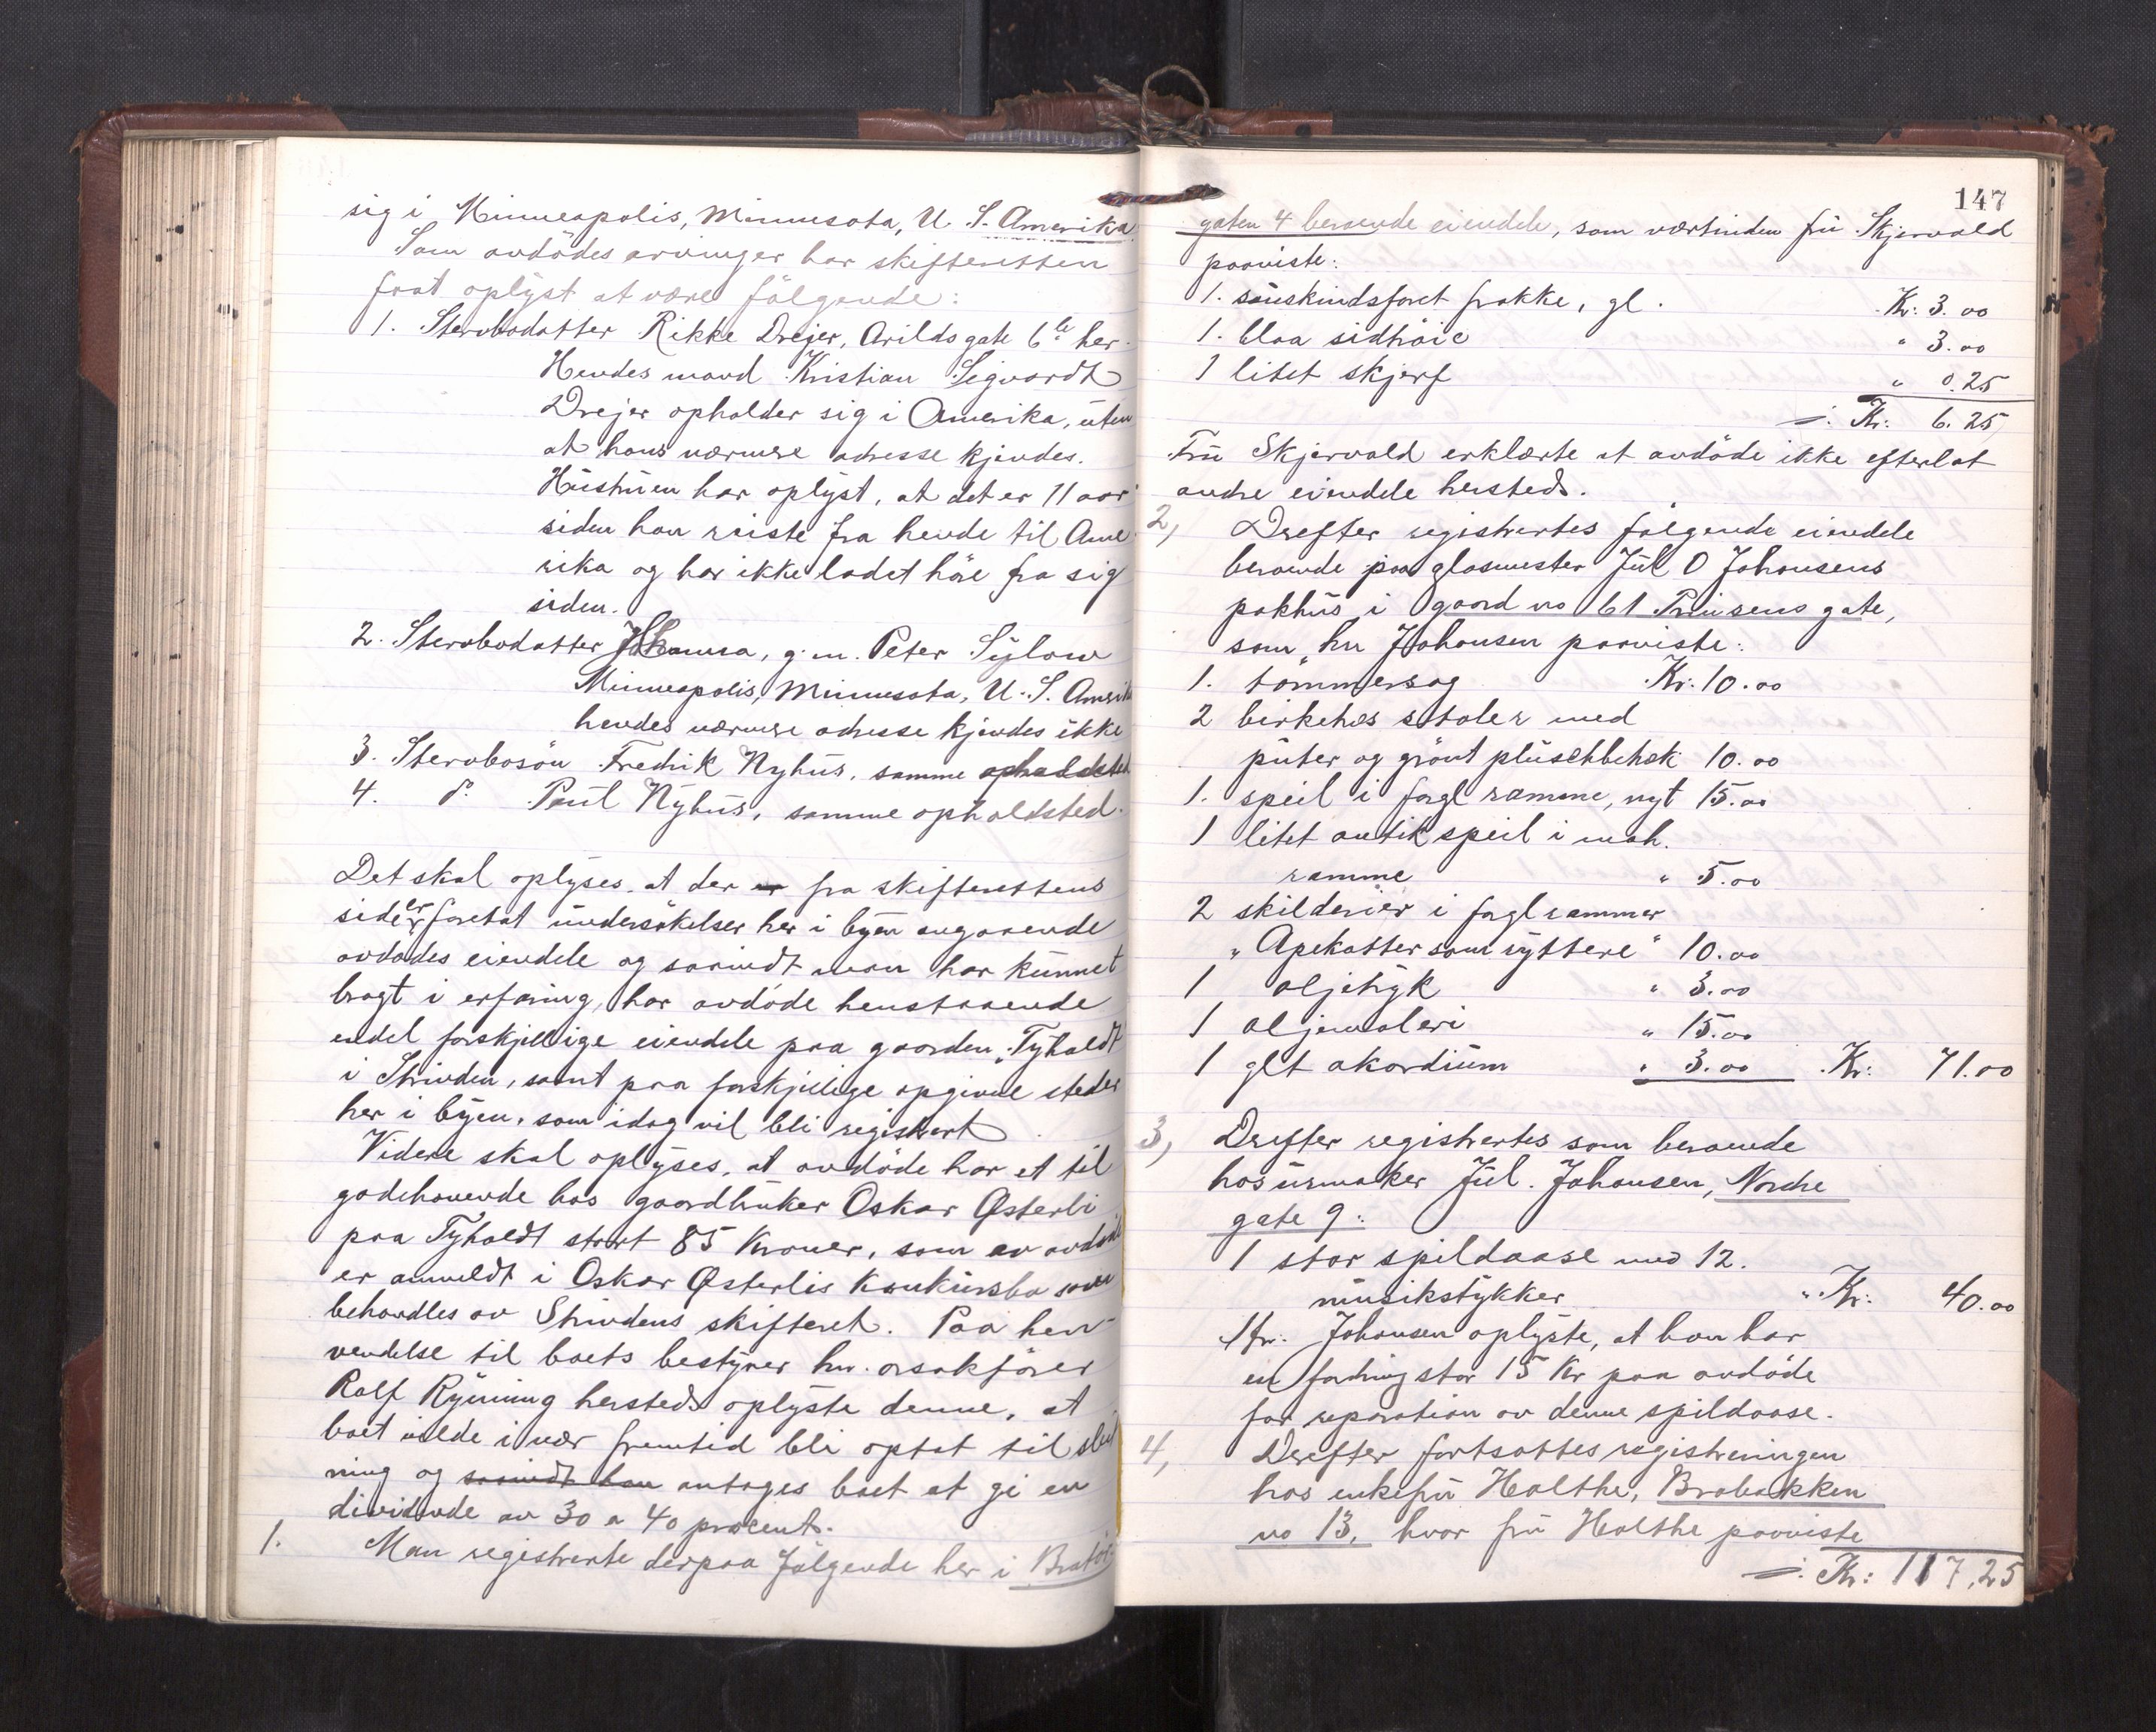 sig i Minneapolis, Minnesota, U. S. Amerika
Som avdödes arvinger har skifteretten
faat oplyst at være följende:
1. Stervbodatter Rikke Drejer, Arildsgate 6 b her.
Hendes mand Kristian Sigvardt
Drejer opholder sig i Amerika, uten
at hans nærmere adresse kjendes.
Hustruen har oplyst, at det er 11 aar
siden han reiste fra hende til Ame
rika og har ikke ladet höre fra sig
siden.
2. Stervbodatter Johanna, g. m. Peter Sylow
Minneapolis, Minnesota, U. S. Amerika
hendes nærmere adresse kjendes ikke
3. Stervbosön Fredrik Nyhus, samme opholdsted
4. d. Paul Nyhus, samme opholdsted.
Det skal oplyses, at der er fra skifterettens
side er foretat undersökelser her i byen angaaende
avdödes eiendele og saavidt man har kunnet
bragt i erfaring, har avdöde henstaaende
endel forskjellige eiendele paa gaarden "Tyholdt
i Strinden, samt paa forskjellige opgivne steder
her i byen, som idag vil bli registrert.
Videre skal oplyses, at avdöde har et til
godehavende hos gaardbruker Oskar Østerli
paa Tyholdt stort 85 kroner, som av avdöde
er anmeldt i Oskar Østerlis konkursbo som
behandles av Strindens skifteret. Paa hen-
vendelse til boets bestyrer hr. orsakförer
Rolf Ryjning hersteds oplyste denne, at
boet vilde i nær fremtid bli optat til slut
ning og saavidt han antages boet at gi en
dividende av 30 a 40 procent.
1. Man registrerte derpaa fölgende her i Bratör
147
gaten 4 beroende eiendele, som værtinden fru Skjervold
paaviste:
1. saueskindsforet frakke, gl. Kr: 3.00
1. blaa sidtröie " 3.00
1 litet skjerf " 0.25
÷. Kr: 6.25
Fru Skjervold erklærte at avdöde ikke efterlat
andre eiendele hersteds.
2, Derefter registrertes fölgende eiendele
beroende paa glasmester Jul O Johansens
pakhus i gaard no 61 Prinsens gate,
som hr Johansen paaviste:
1. tömmersag Kr. 10.00
2 birketræs stoler med
puter og grönt plüschbetræk 10.00
1. speil i forgl ramme, nyt 15.00
1 litet antik speil i mah.
ramme " 5.00
2 skilderier i forgl rammer
"Apekatter som ryttere" 10.00
1 oljetryk " 3.00
1 oljemaleri " 15.00
1 glt akordium " 3.00 Kr: 71.00
3, Derefter registrertes som beroende
hos urmaker Jul. Johansen, Nordre
gate 9:
1 stor spildaase med 12.
musikstykker " Kr: 40.00
Hr. Johansen oplyste, at han har
en fordring stor 15 Kr paa avdöde
for reparation av denne spildaase.
4, Derefter fortsattes registreringen
hos enkefru Holthe, Brobakken
no 13, hvor fru Holthe paaviste
÷. Kr: 117,25